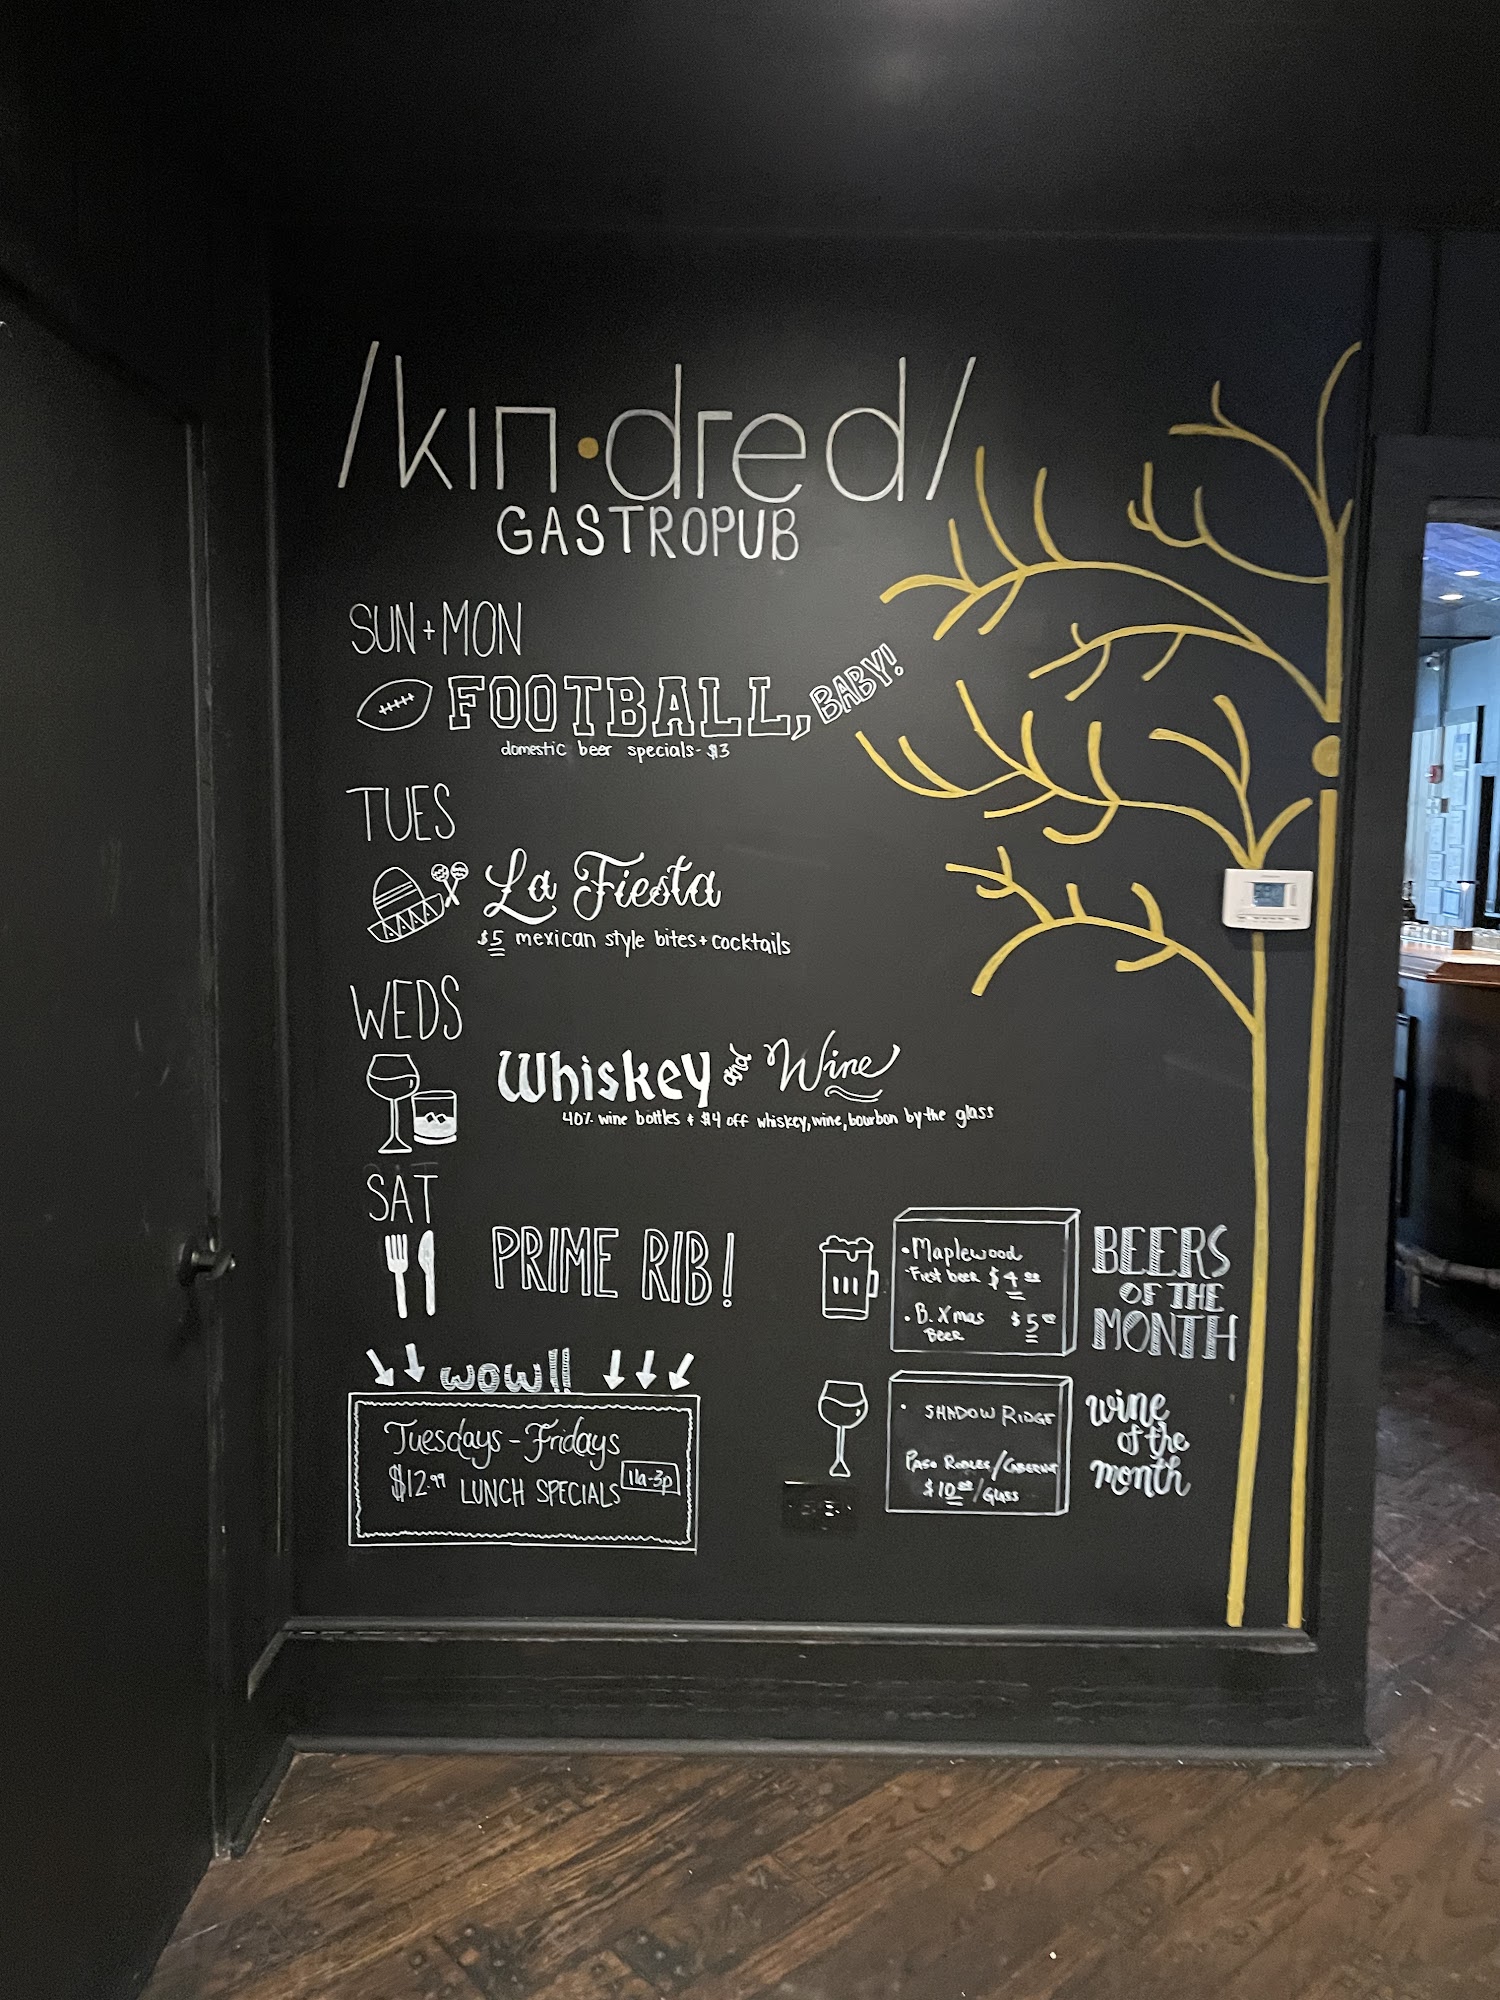 /kin·dred/
GASTROPUB
SUN+MON
FOOTBALL, BABY!
domestic beer specials- $3
TUES
La Fiesta
$5 mexican style bites + cocktails
WEDS
Whiskey and Wine
40% wine bottles + $4 off whiskey, wine, bourbon by the glass
SAT
PRIME RIB!
WOW!!
Tuesdays - Fridays
$12.99 LUNCH SPECIALS 11a-3p
• Maplewood
-Fest beer $4.00
• B. Xmas $5.00
Beer
BEERS
OF THE
MONTH
• SHADOW RIDGE
PASO ROBLES/CABERNET
$10.00/GLASS
wine
of the
month